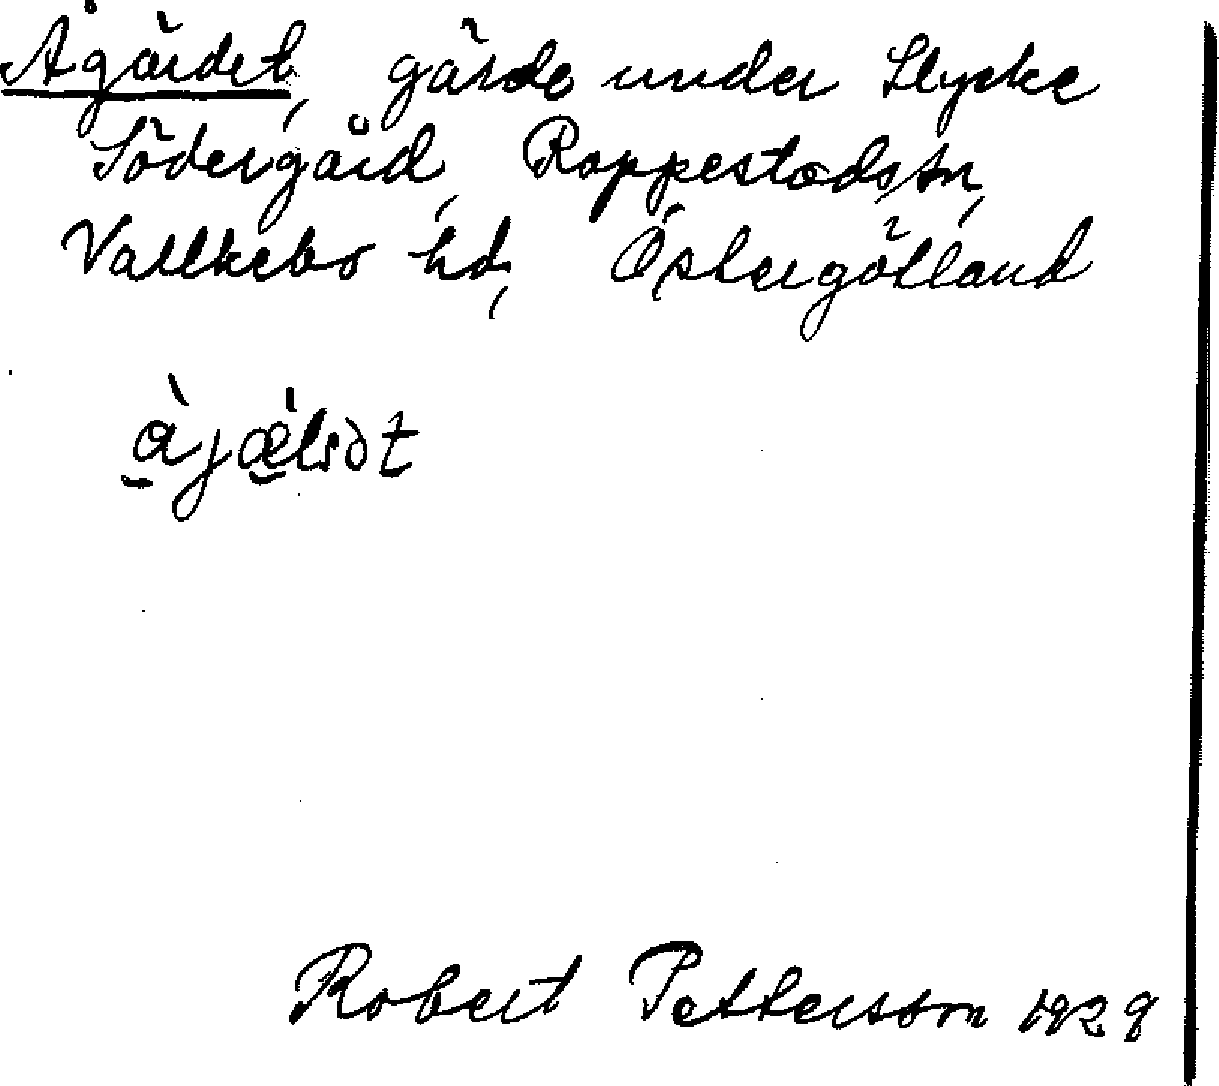 Ågärdet, gärde under Stycke
Södergård, Rappestads sn,
Valkebo hd, Östergötland
Robert Pettersson 1929